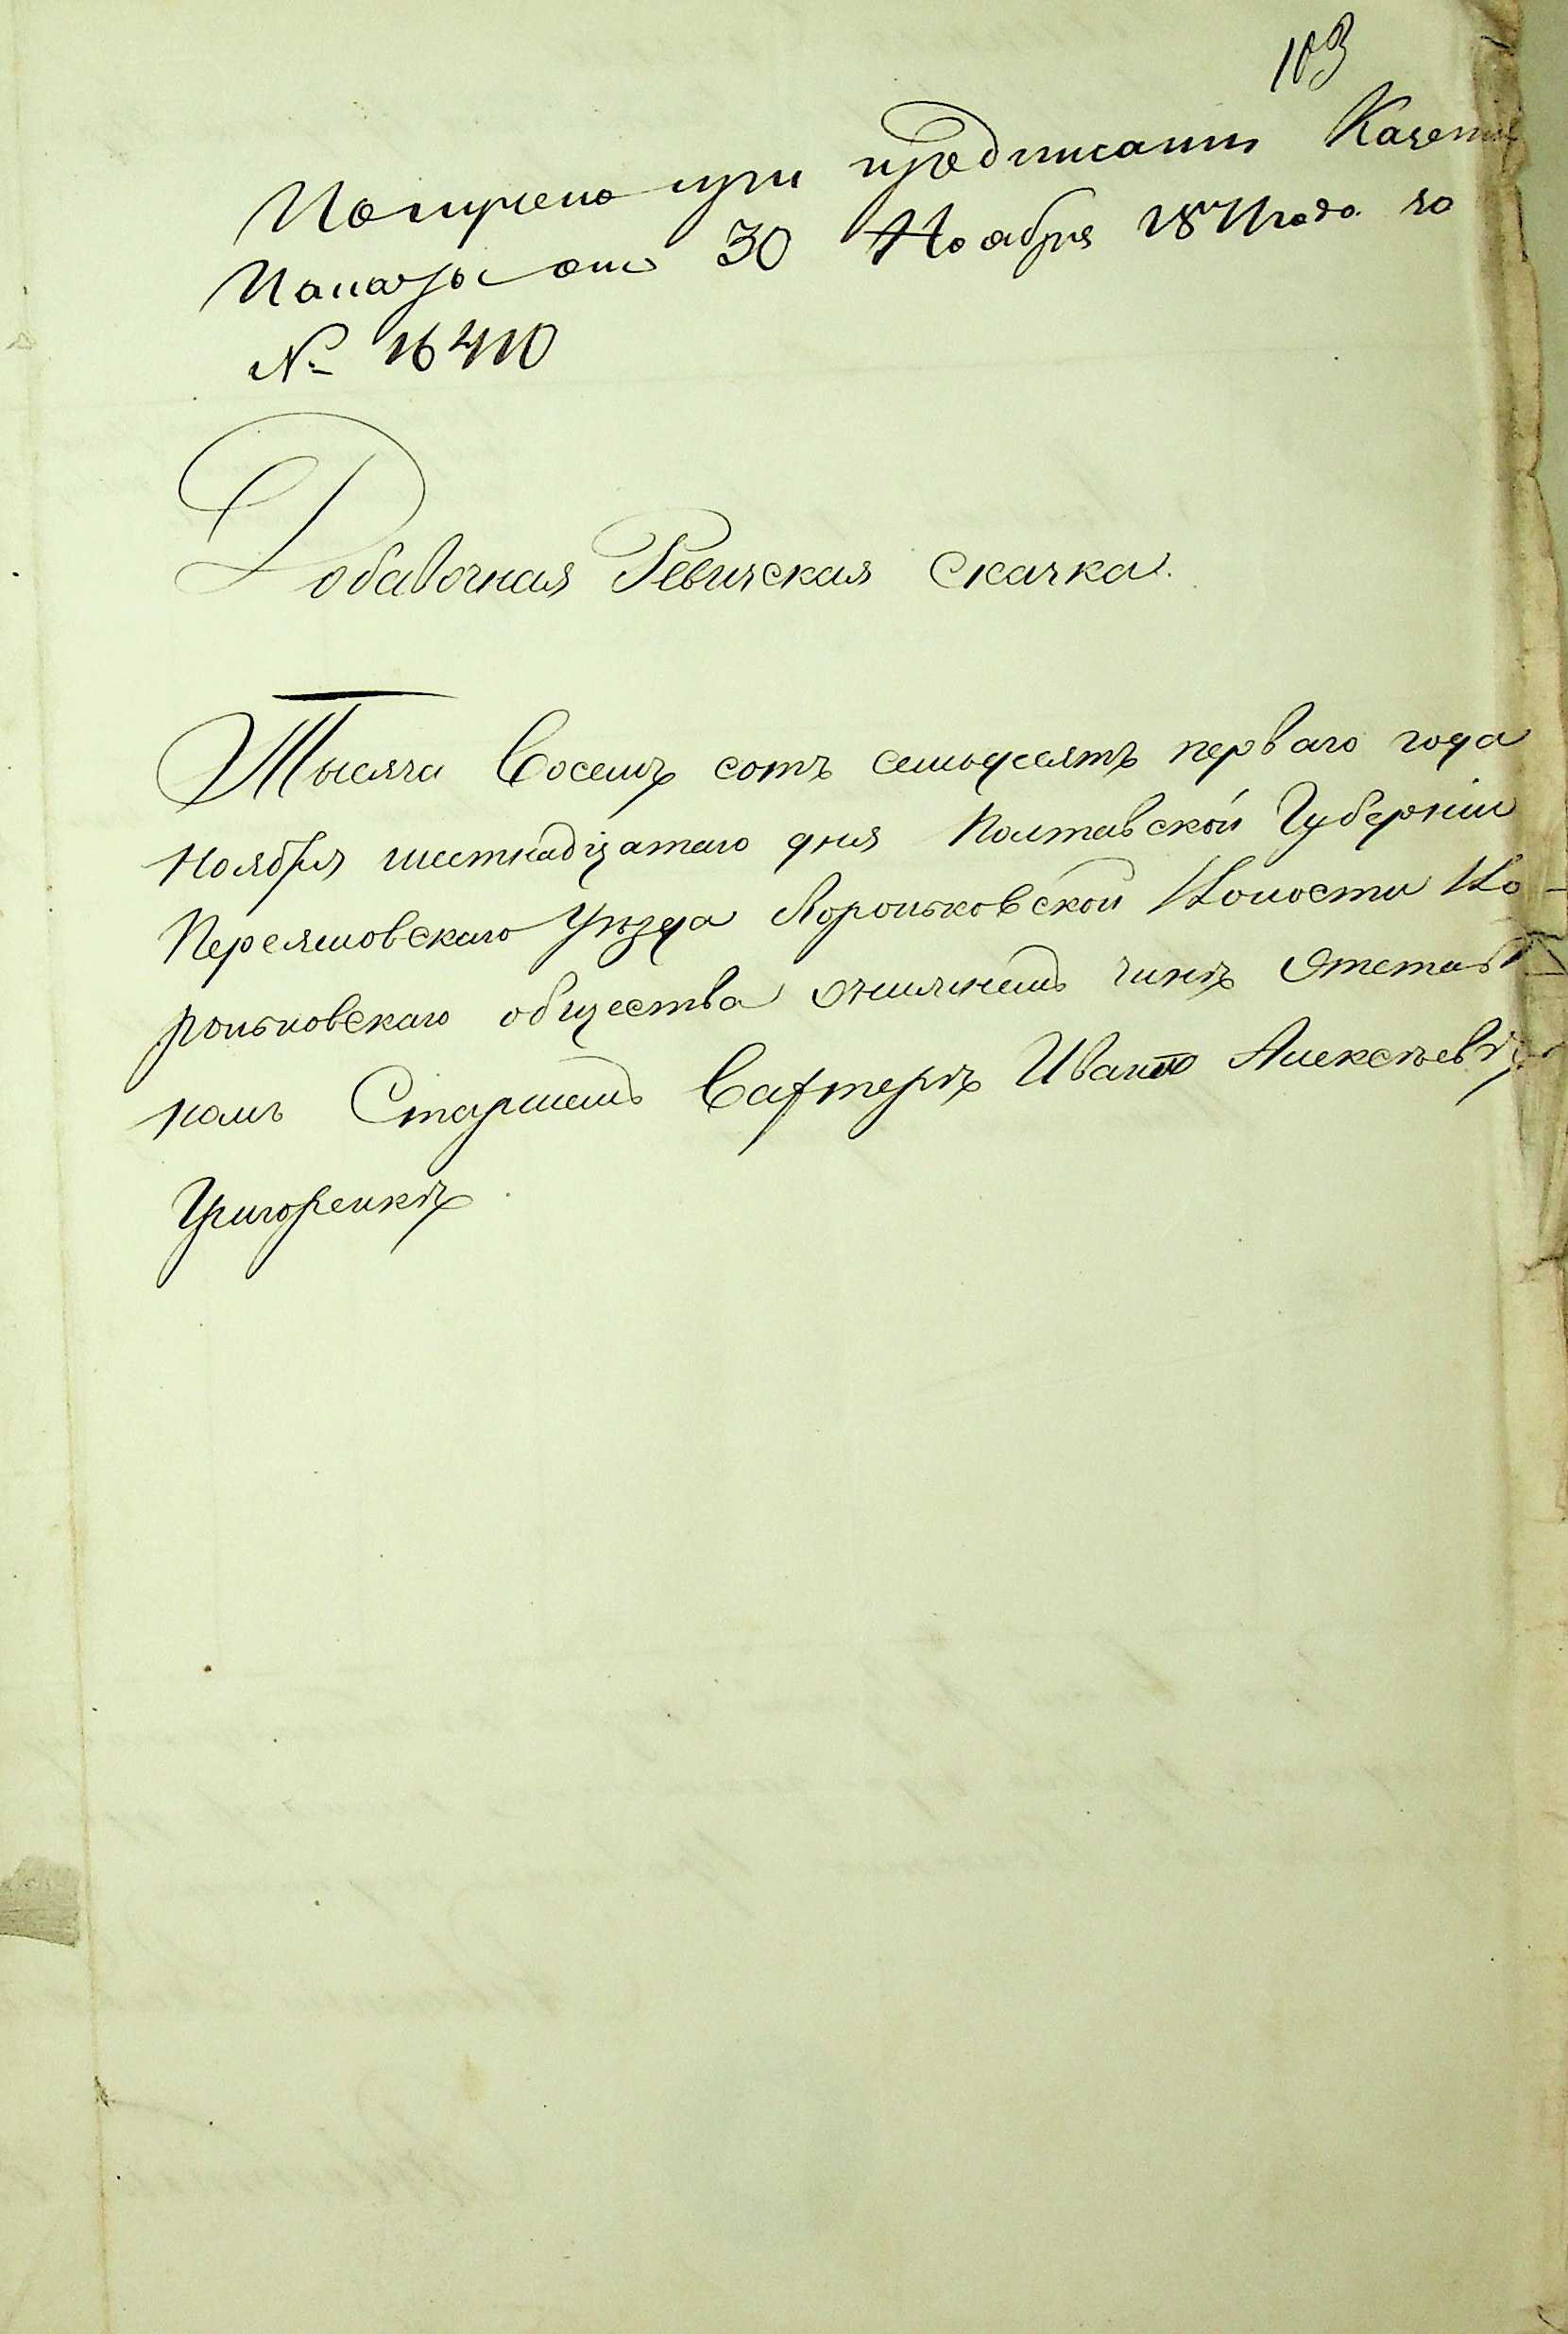 103
Получено при предписании Казенной
Палаты отъ 30 Ноября 1871 года за
№ 16410
Добавочная Ревизская сказка.
Тысяча Восемъ сотъ семьдесятъ перваго года
Ноября шестнадцатаго дня Полтавской Губерніи
Переяславскаго Уѣзда Вороньковской Волости Во-
роньковскаго общества о нижнемъ чинѣ Отстав
номъ Старшемъ Вахтерѣ Иванѣ Алексѣевѣ
Григоренкѣ